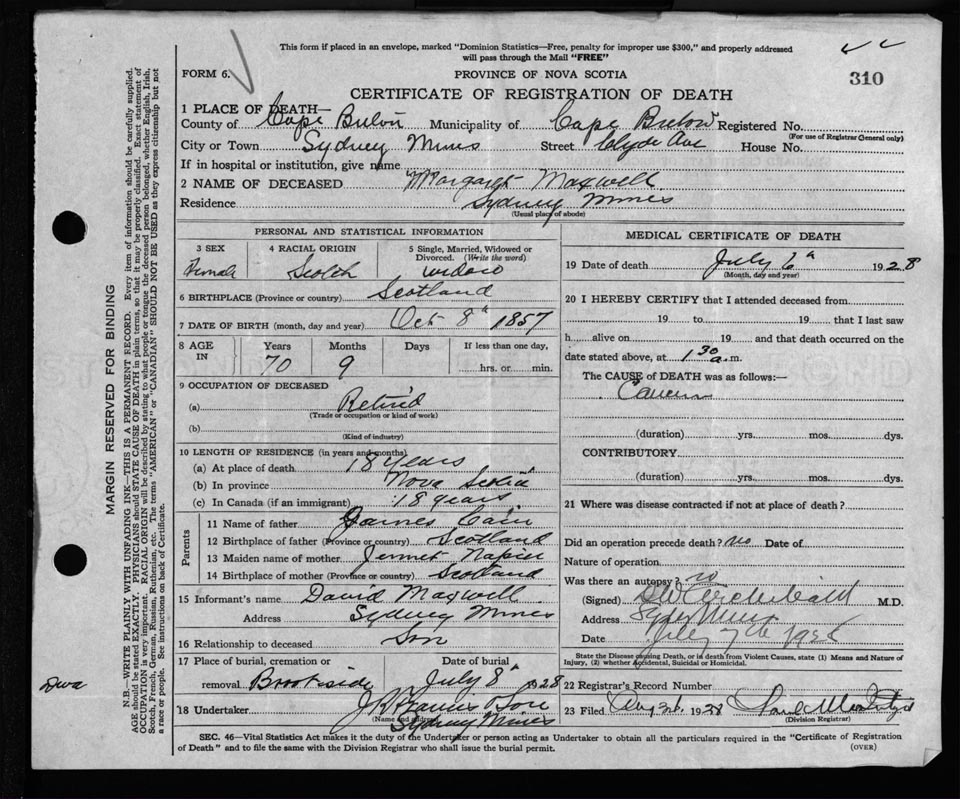 This form if placed in an envelope, marked "Dominion Statistics—Free, penalty for improper use $300," and properly addressed
will pass through the Mail "FREE"
FORM 6.
PROVINCE OF NOVA SCOTIA
310
CERTIFICATE OF REGISTRATION OF DEATH
1 PLACE OF DEATH—
County of Cape Breton Municipality of Cape Breton Registered No.
(For use of Registrar General only)
City or Town Sydney Mines Street Clyde Ave House No.
If in hospital or institution, give name
2 NAME OF DECEASED Margaret Maxwell
Residence Sydney Mines
(Usual place of abode)
PERSONAL AND STATISTICAL INFORMATION
3 SEX 4 RACIAL ORIGIN 5 Single, Married, Widowed or Divorced. (Write the word)
Female Scotch widow
6 BIRTHPLACE (Province or country) Scotland
7 DATE OF BIRTH (month, day and year) Oct 8th 1857
8 AGE IN Years Months Days If less than one day,
70 9 hrs. or min.
9 OCCUPATION OF DECEASED
(a) Retired
(Trade or occupation or kind of work)
(b)
(Kind of industry)
10 LENGTH OF RESIDENCE (in years and months)
(a) At place of death 18 years
(b) In province Nova Scotia
(c) In Canada (if an immigrant) 18 years
Parents
11 Name of father James Cain
12 Birthplace of father (Province or country) Scotland
13 Maiden name of mother Jennet Napier
14 Birthplace of mother (Province or country) Scotland
15 Informant's name David Maxwell
Address Sydney Mines
16 Relationship to deceased Son
17 Place of burial, cremation or Date of burial
removal Brookside July 8th 1928
18 Undertaker & Son
(Name and address)
Sydney Mines
MEDICAL CERTIFICATE OF DEATH
19 Date of death July 6th 1928
(Month, day and year)
20 I HEREBY CERTIFY that I attended deceased from
19 to 19 , that I last saw
h alive on 19 and that death occurred on the
date stated above, at 1 30 a.m.
The CAUSE of DEATH was as follows:—
Cancer
(duration) yrs. mos. dys.
CONTRIBUTORY
(duration) yrs. mos. dys.
21 Where was disease contracted if not at place of death?
Did an operation precede death? No Date of
Nature of operation
Was there an autopsy? no
(Signed) Archibald M.D.
Address Syd Mines
Date July 7th 1928
State the Disease causing Death, or is death from Violent Causes, state (1) Means and Nature of
Injury, (2) whether Accidental, Suicidal or Homicidal.
22 Registrar's Record Number
23 Filed Aug 1928
(Division Registrar)
SEC. 46—Vital Statistics Act makes it the duty of the Undertaker or person acting as Undertaker to obtain all the particulars required in the "Certificate of Registration
of Death" and to file the same with the Division Registrar who shall issue the burial permit.
(OVER)
MARGIN RESERVED FOR BINDING
N.B.—WRITE PLAINLY WITH UNFADING INK—THIS IS A PERMANENT RECORD. Every item of information should be carefully supplied.
AGE should be stated EXACTLY. PHYSICIANS should STATE CAUSE OF DEATH in plain terms, so that it may be properly classified. Exact statement of
OCCUPATION is very important. RACIAL ORIGIN will be described by stating to what people or tongue the deceased person belonged, whether English, Irish,
Scotch, French, German, Russian, Ruthenian, etc. The terms "AMERICAN" or "CANADIAN" SHOULD NOT BE USED as they express citizenship but not
a race or people. See instructions on back of Certificate.